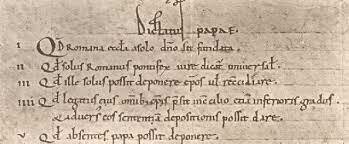 Dictatus papae.
I Qd Romana eccla a solo dno sit fundata.
II Qd solus Romanus pontifex iure dicat universal.
III Qd ille solus possit deponere epos ul recciliare.
IIII Qd legatus eius omib epis psit in cilio etia inferioris gradus.
& adversus eos sententia depositionis possit dare.
V Qd absentes papa possit deponere.